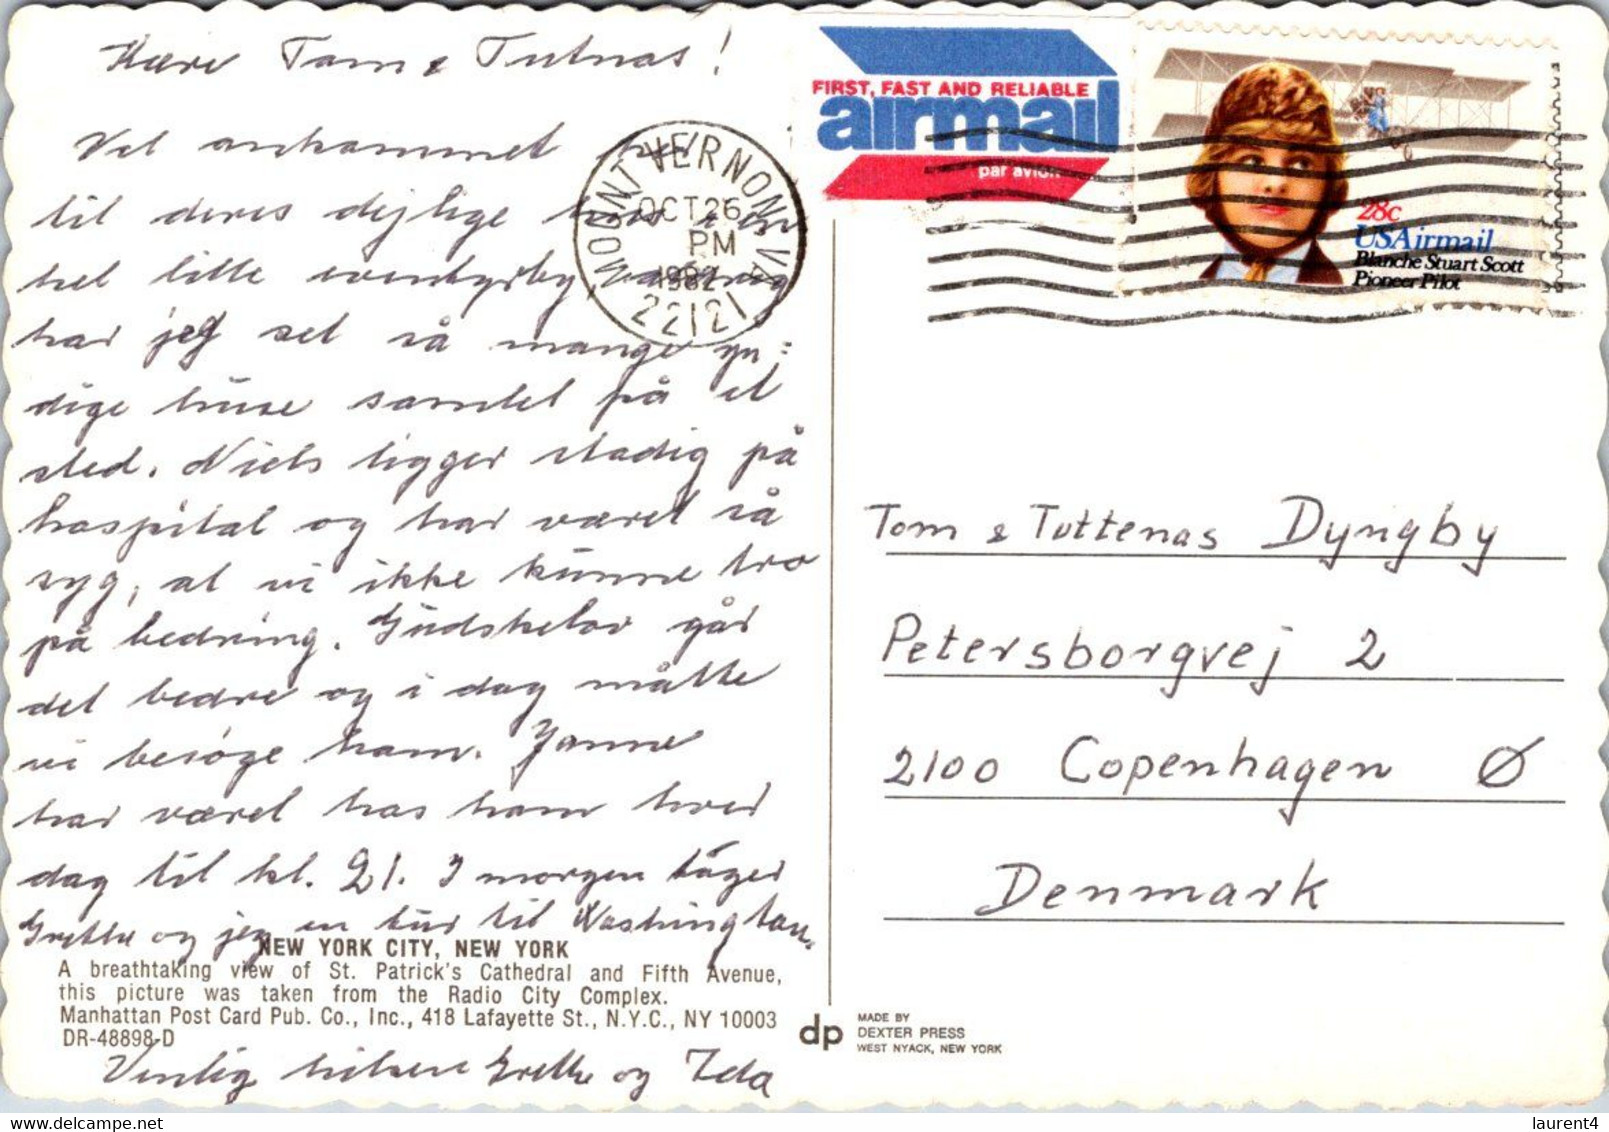 Kære Tom & Tutnas!
Vel ankommet her
til deres dejlige hus i en
hel lille eventyrby, aldrig
har jeg set så mange yn-
dige huse samlet på et
sted. Niels ligger stadig på
hospital og har været så
syg, at vi ikke kunne tro
på bedring. Gudskelov går
det bedre og i dag måtte
vi besøge ham. Janne
har været hos ham hver
dag til kl. 21. I morgen tager
Grethe og jeg en tur til Washington.
NEW YORK CITY, NEW YORK
A breathtaking view of St. Patrick's Cathedral and Fifth Avenue,
this picture was taken from the Radio City Complex.
Manhattan Post Card Pub. Co., Inc., 418 Lafayette St., N.Y.C., NY 10003
DR-48898-D
Venlig hilsen Grethe og Ida
MOUNT VERNON, VA
OCT 26
PM
1982
22121
FIRST, FAST AND RELIABLE
airmail
par avion
28c
USAirmail
Blanche Stuart Scott
Pioneer Pilot
Tom & Tuttenas Dyngby
Petersborgvej 2
2100 Copenhagen Ø
Denmark
dp
MADE BY
DEXTER PRESS
WEST NYACK, NEW YORK
delcampe.net
laurent4